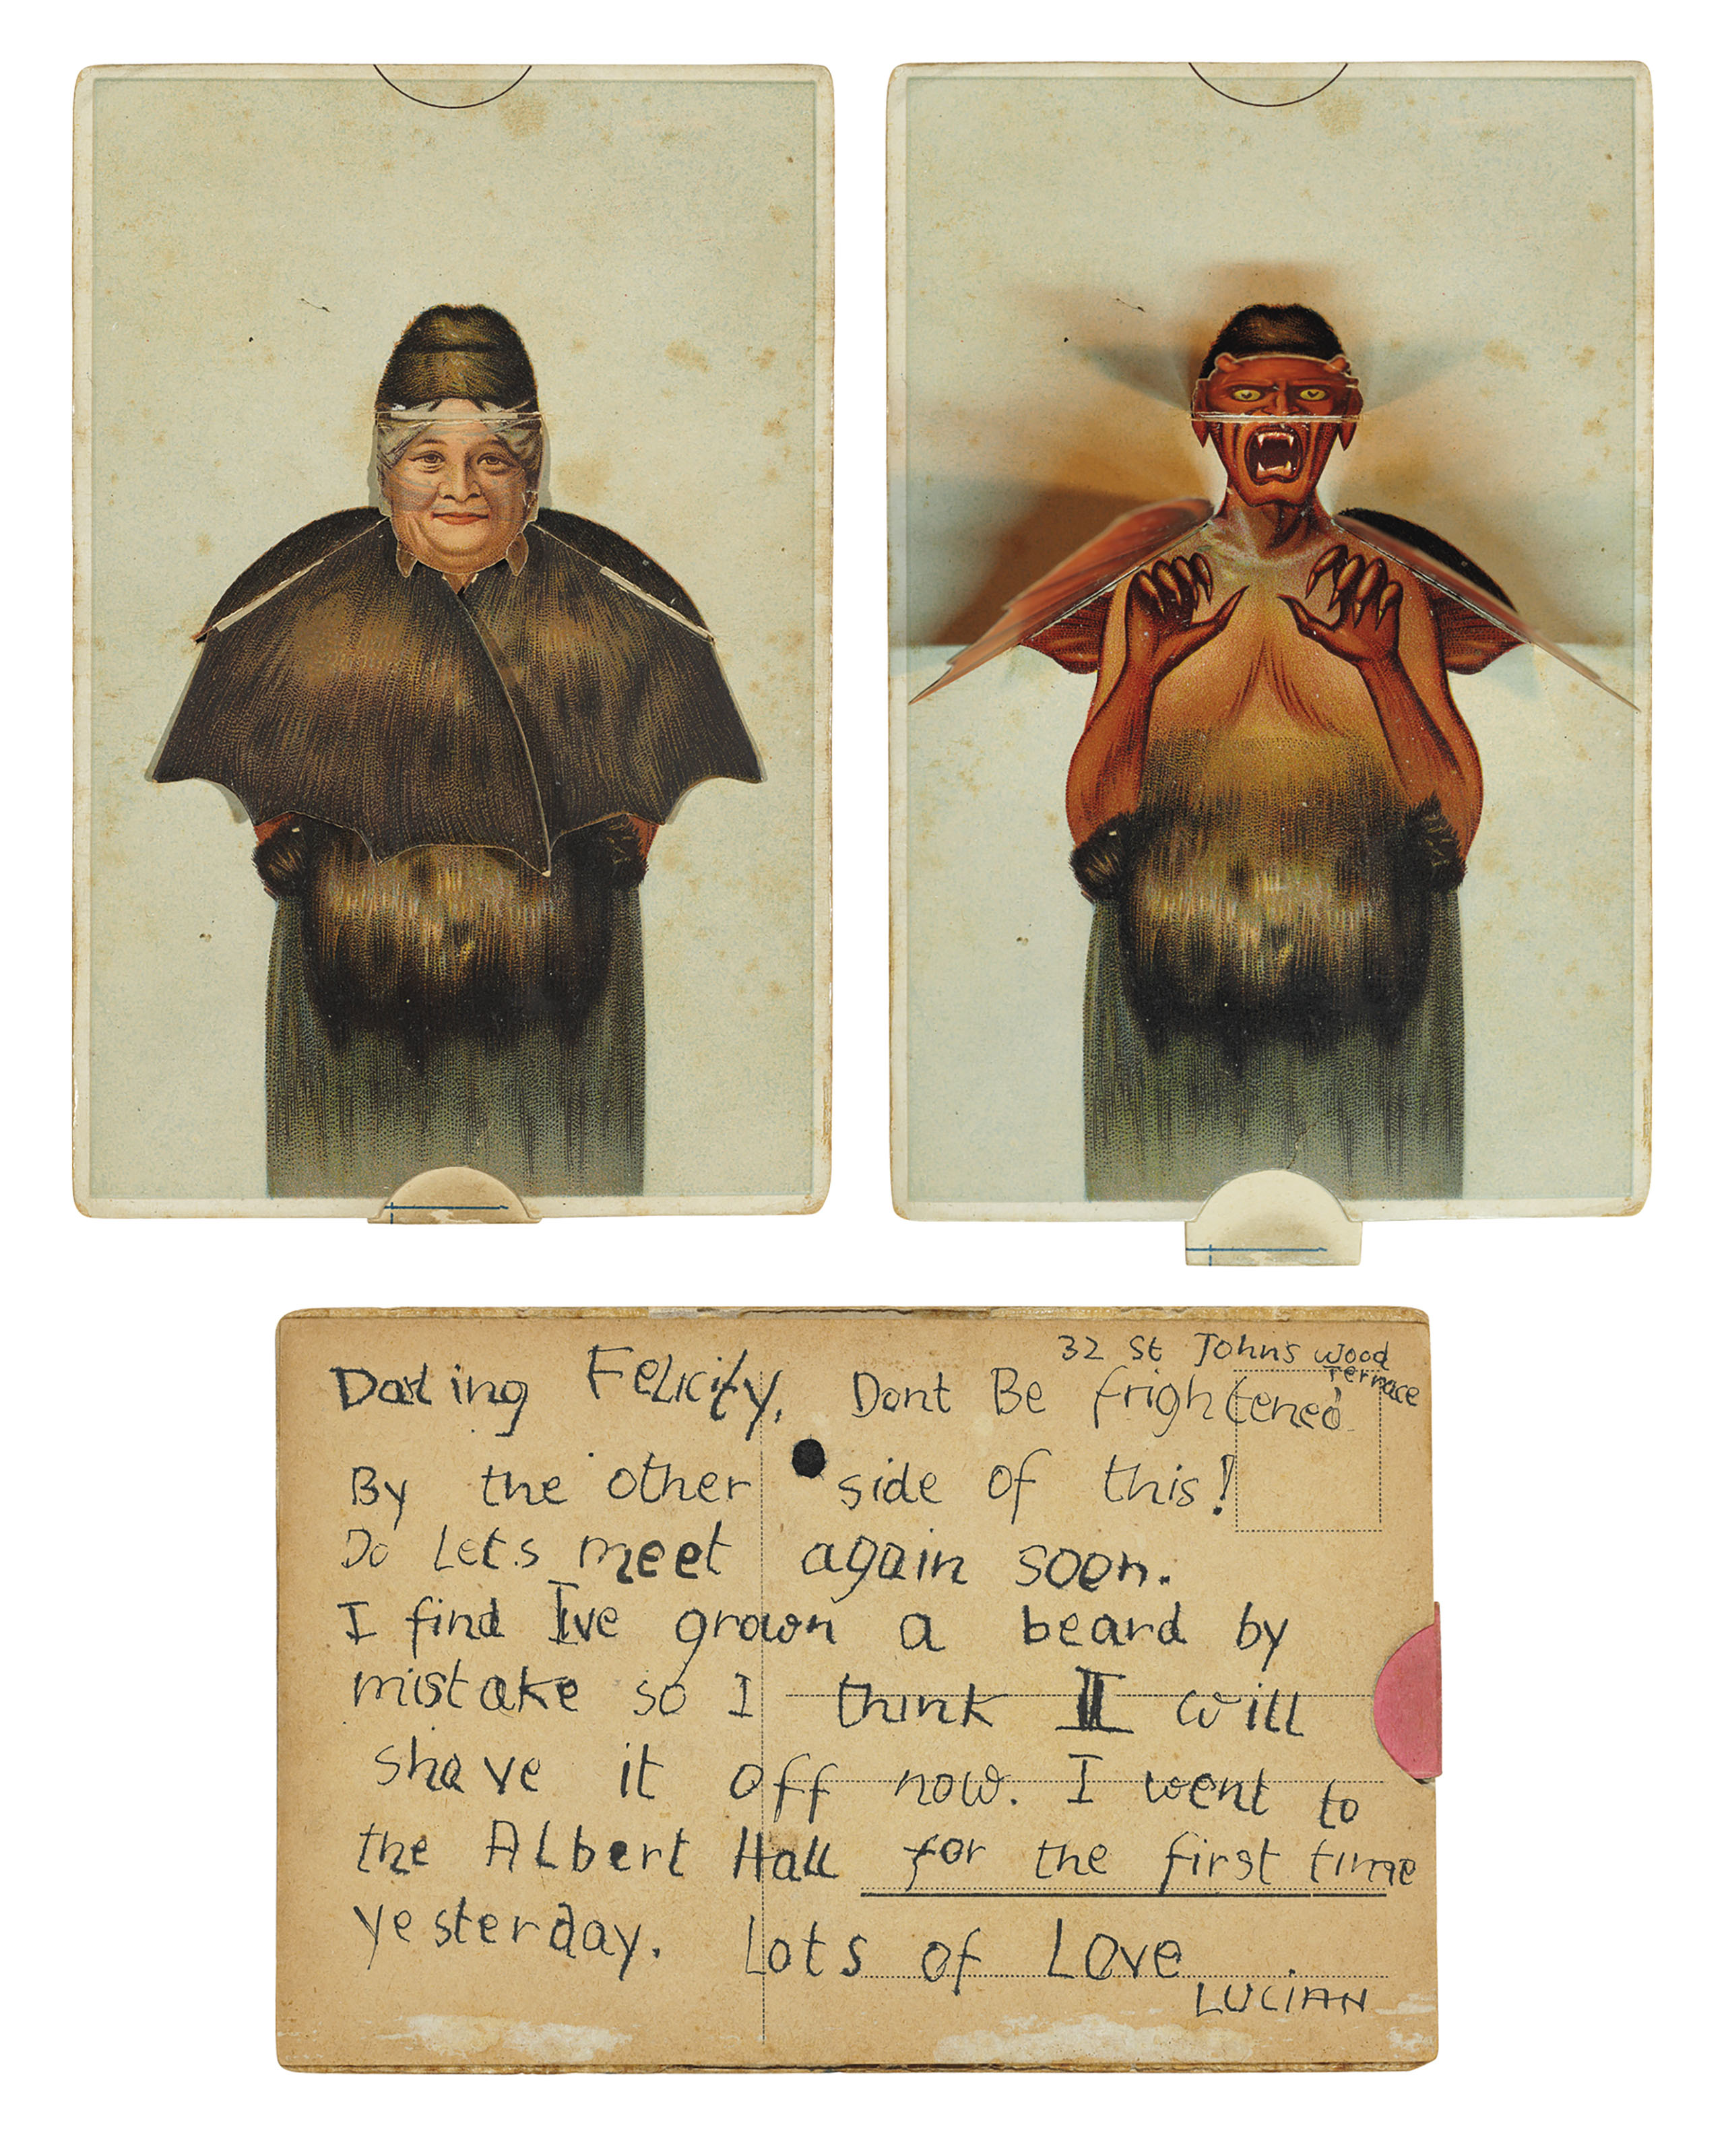 32 St Johns wood
Terrace
Darling Felicity, Dont Be frightened
By the other side of this!
Do Lets meet again soon.
I find Ive grown a beard by
mistake so I think I will
shave it off now. I went to
the Albert Hall for the first time
yesterday. Lots of Love
LUCIAN